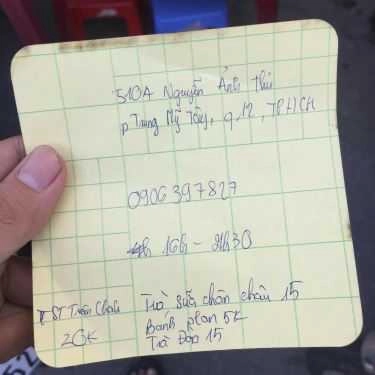 510A Nguyễn Ảnh Thủ
p Trung Mỹ Tây, q.12, TPHCM
0906397827
16h - 21h30
ST Trân Châu
20K
Trà sữa chân châu 15
Bánh plan 5K
Trà Đào 15